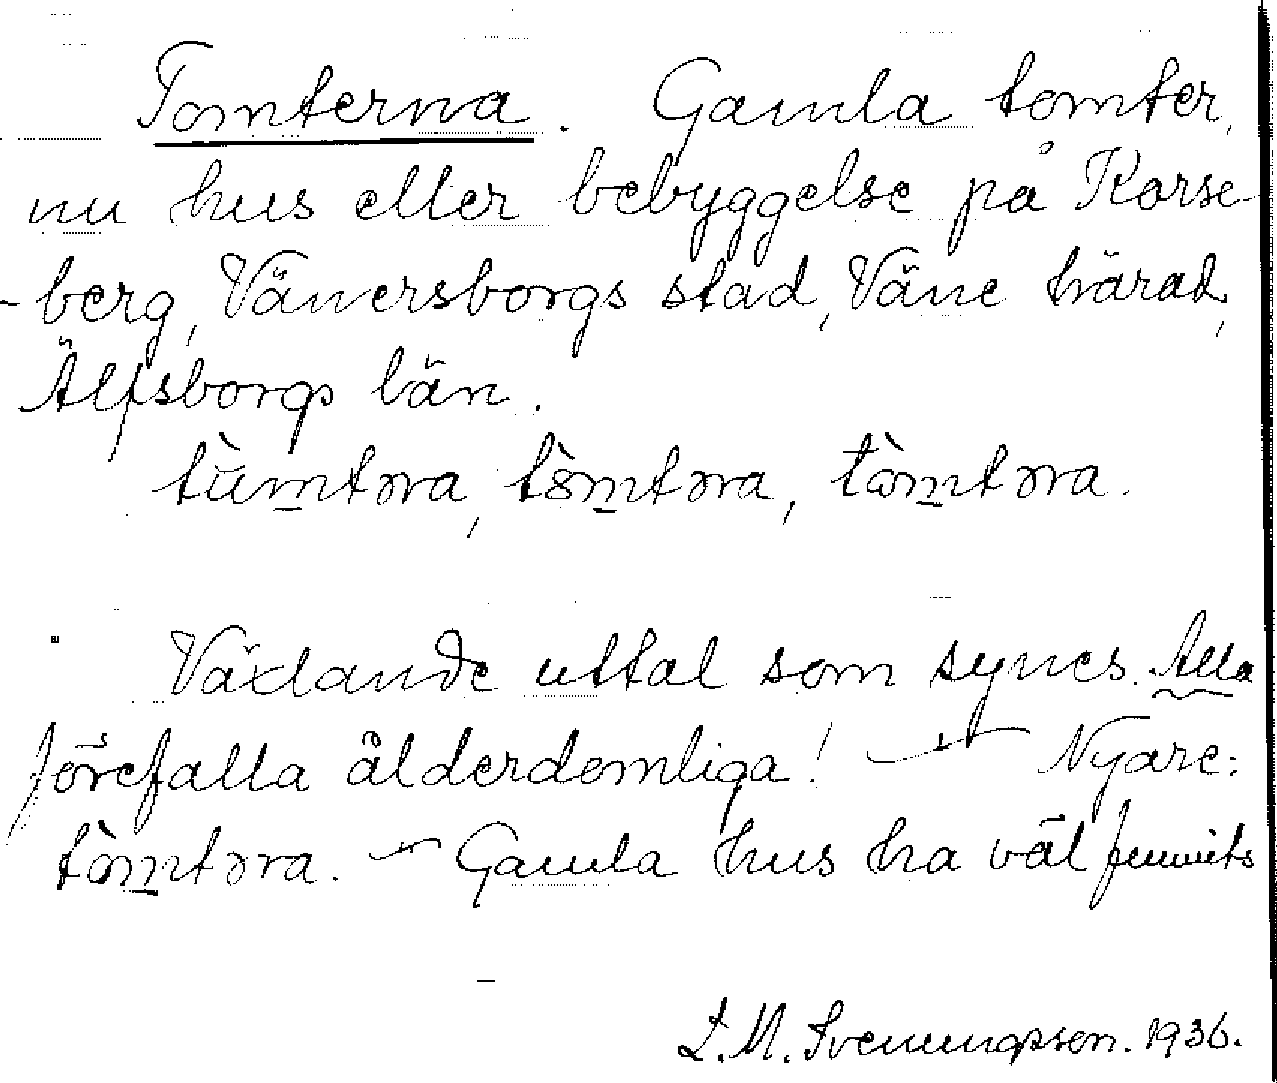 Tomterna. Gamla tomter,
nu hus eller bebyggelse på Korse-
-berg, Vänersborgs stad, Väne härad,
Älfsborgs län.
tùmtəra, tòmtəra, tòmtəra.
Växlande uttal som synes. Alla
förefalla ålderdomliga! — Nyare:
tòmtəra. — Gamla hus ha väl funnits
L. M. Svenungsson. 1936.